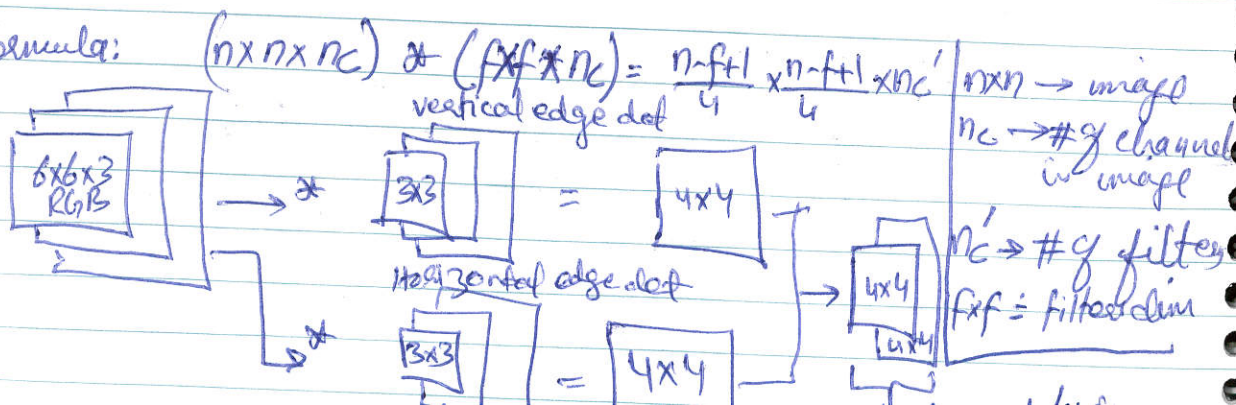 ormula: (n×n×nc) * (f×f×nc) = n-f+1/4 × n-f+1/4 × nc'
n×n → image
nc → # of channel
in image
nc' → # of filters
f×f = filter dim
vertical edge det
6×6×3
RGB
→ *
3×3
=
4×4
Horizontal edge det
→ *
3×3
=
4×4
→
4×4
4×4